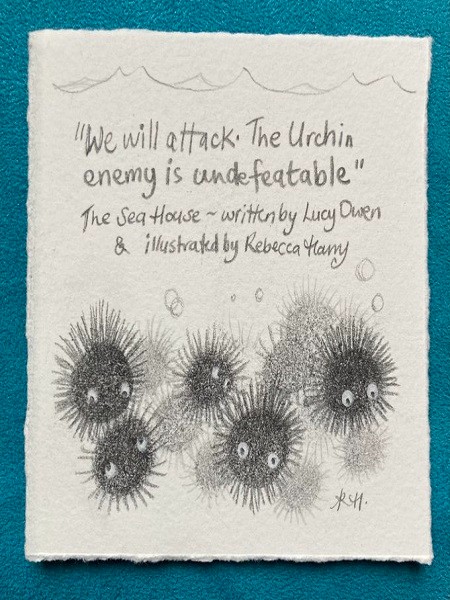 "We will attack. The Urchin
enemy is undefeatable"
The Sea House ~ written by Lucy Owen
& illustrated by Rebecca Harry
RH.